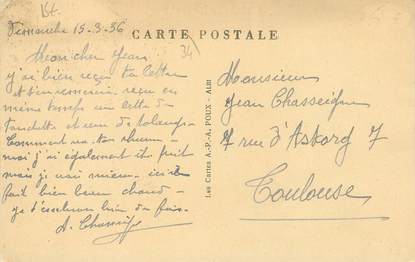 Dimanche 15-3-36
CARTE POSTALE
34
Mon cher Jean
j'ai bien reçu ta lettre
et t'en remercie, reçu en
même temps une lettre de
et une de
Comment va ton rhume -
moi j'ai également été pris
mais je vais mieux. ici il
fait bien beau chaud -
je t'embrasse bien des fois.
A. Chasseigne
Monsieur
Jean Chasseigne
7 rue d'Astorg 7
Toulouse
Les Cartes A.-P.-A. POUX - Albi